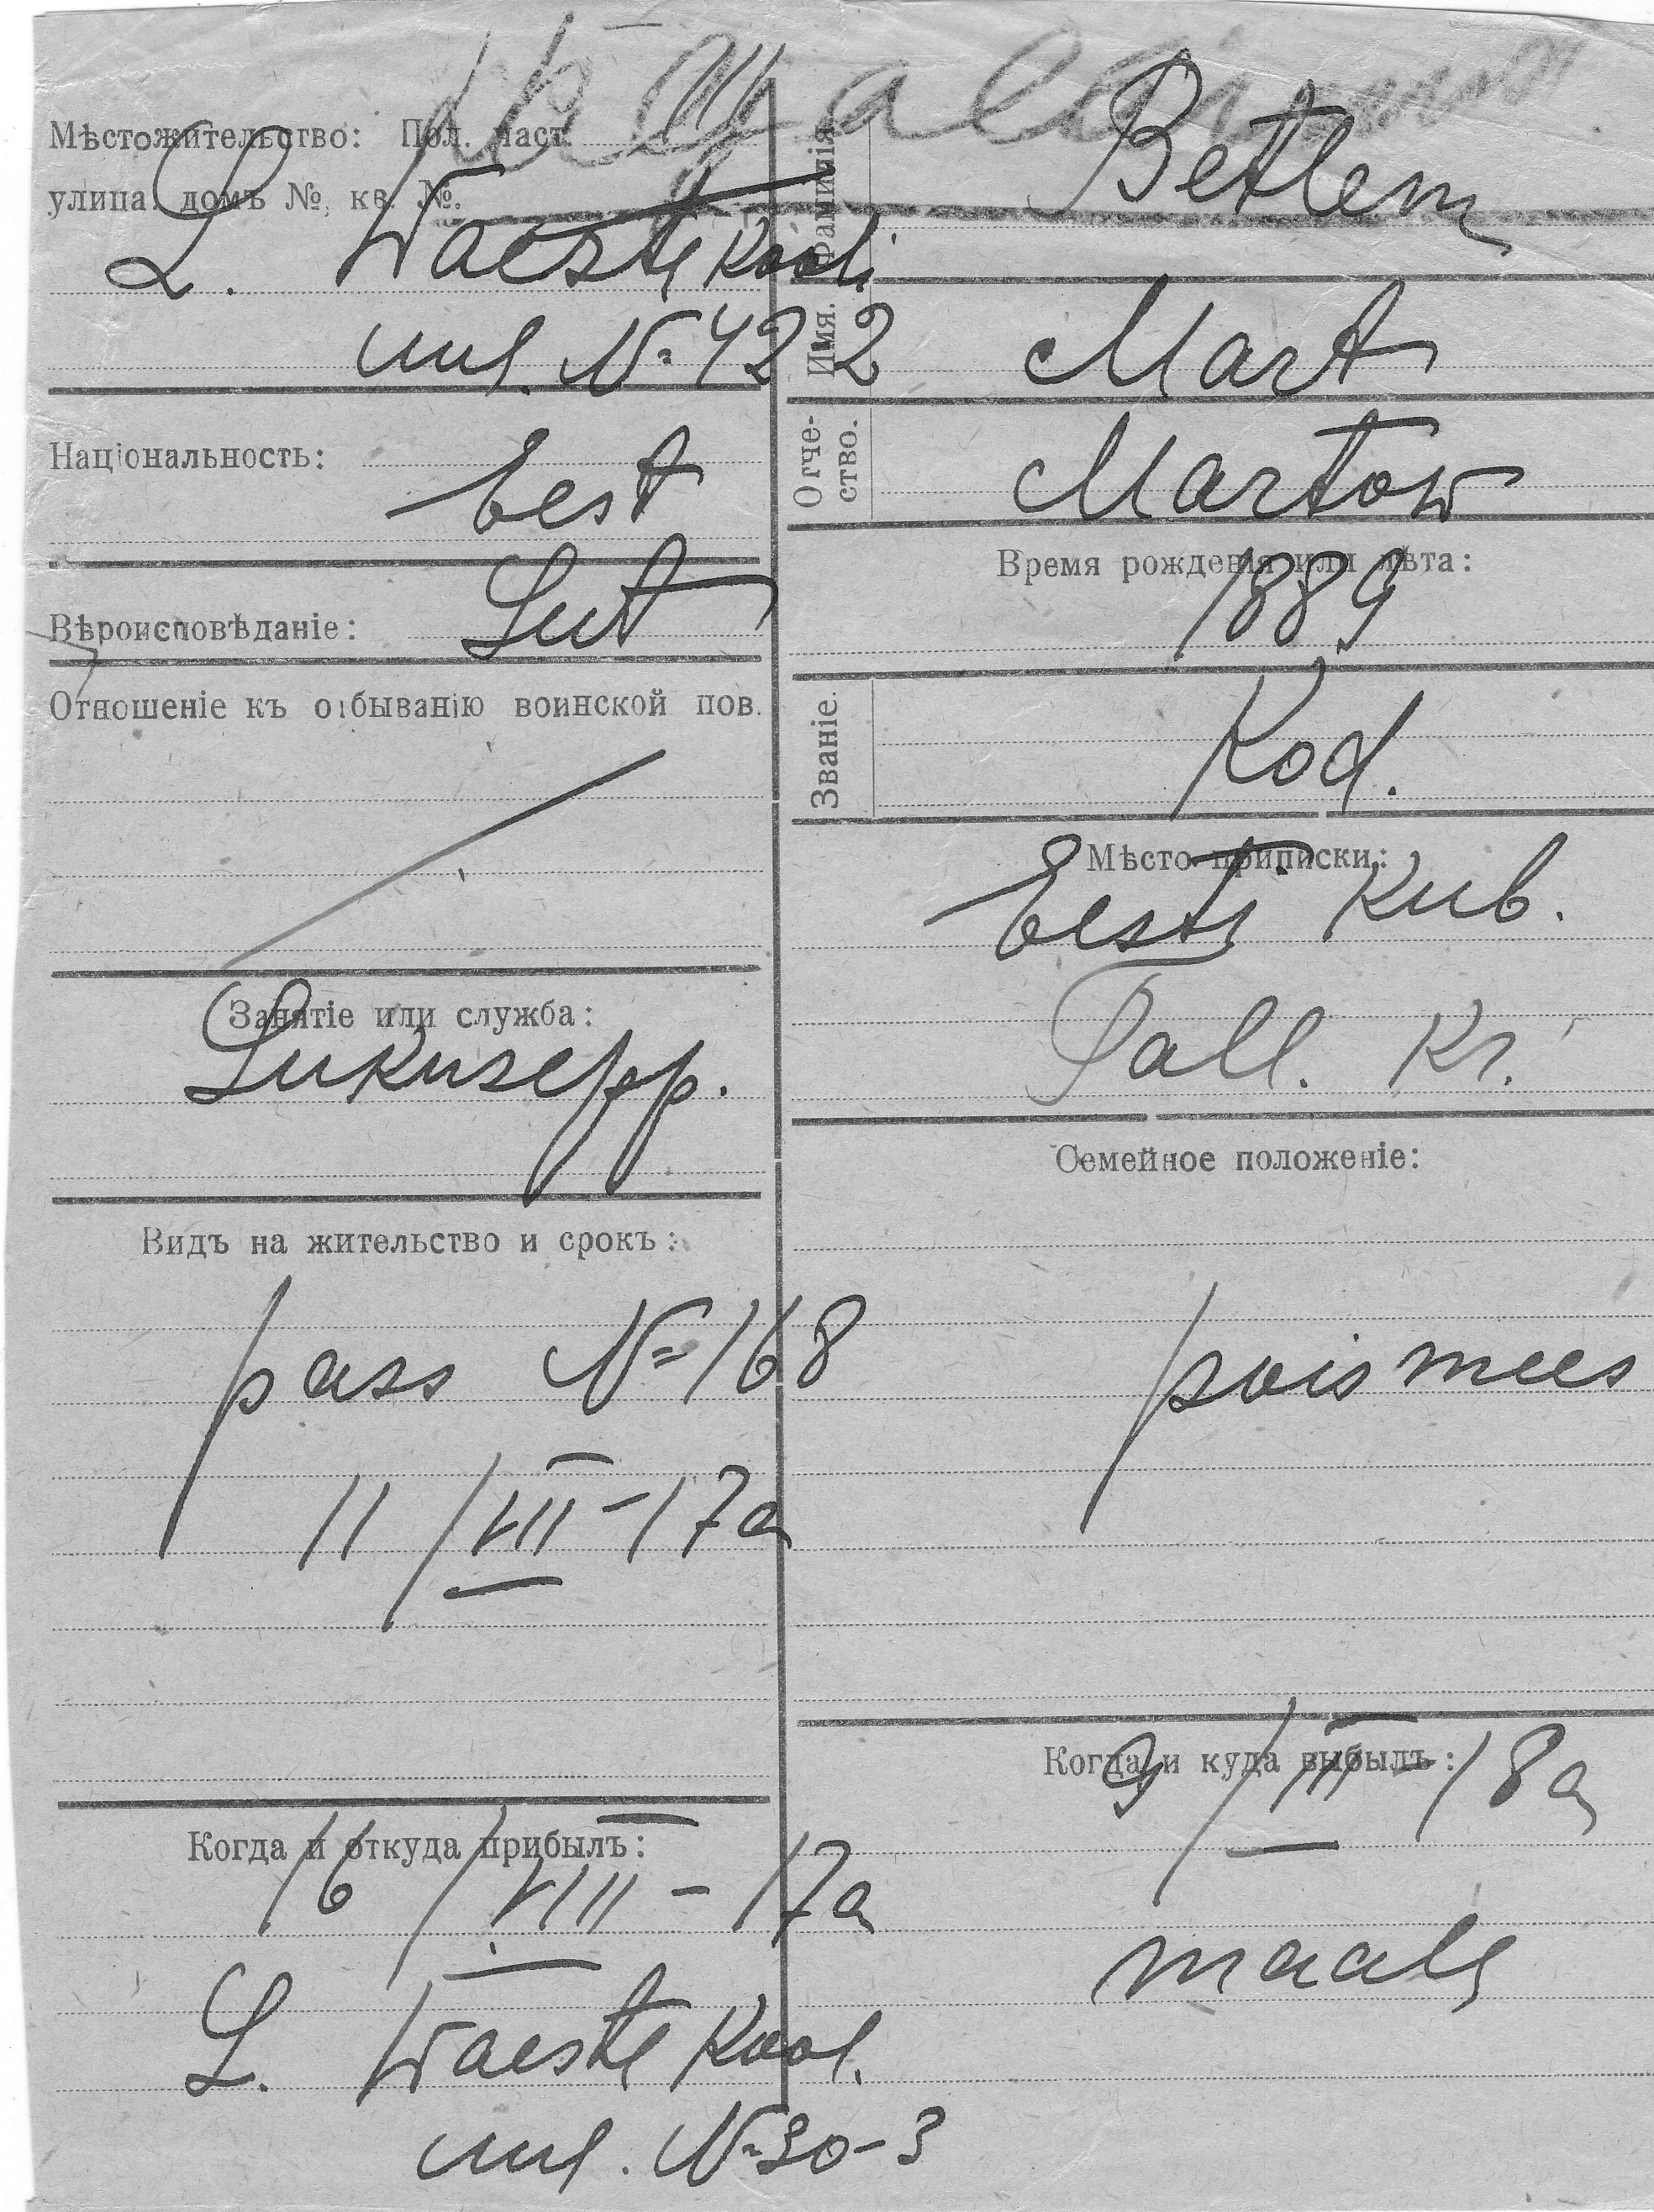 Мѣстожительство: Пол. част.
улица, домъ №, кв. №.
L. Waeste kooli
uul. № 42 2
Національность: Eest
Вѣроисповѣданіе: Lut
Отношеніе къ отбыванію воинской пов.
Занятіе или служба:
Lukusepp.
Видъ на жительство и срокъ:
pass № 168
11/VII-17a
Когда и откуда прибылъ:
16/VIII-17a
L. Waeste kool.
uul. № 30-3
Фамилія
Betlem
Имя.
Mart
Отче-
ство.
Martow
Время рожденія или лѣта:
1889
Званіе.
Kod.
Мѣсто приписки:
Eesti Kub.
Tall. Kr.
Семейное положеніе:
poismees
Когда и куда выбылъ:
9/III-18a
maale